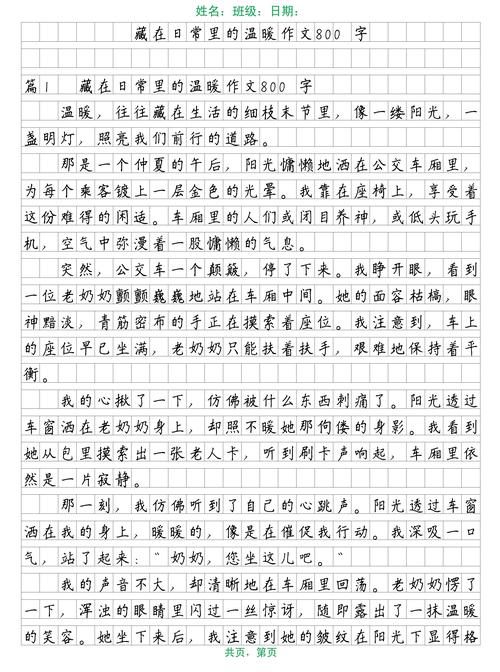 姓名：班级：日期：
藏在日常里的温暖作文800 字
篇1 藏在日常里的温暖作文800 字
温暖，往往藏在生活的细枝末节里，像一缕阳光，一
盏明灯，照亮我们前行的道路。
那是一个仲夏的午后，阳光慵懒地洒在公交车厢里，
为每个乘客镀上一层金色的光晕。我靠在座椅上，享受着
这份难得的闲适。车厢里的人们或闭目养神，或低头玩手
机，空气中弥漫着一股慵懒的气息。
突然，公交车一个颠簸，停了下来。我睁开眼，看到
一位老奶奶颤颤巍巍地站在车厢中间。她的面容枯槁，眼
神黯淡，青筋密布的手正在摸索着座位。我注意到，车上
的座位早已坐满，老奶奶只能扶着扶手，艰难地保持着平
衡。
我的心揪了一下，仿佛被什么东西刺痛了。阳光透过
车窗洒在老奶奶身上，却照不暖她那佝偻的身影。我看到
她从包里摸索出一张老人卡，听到刷卡声响起，车厢里依
然是一片寂静。
那一刻，我仿佛听到了自己的心跳声。阳光透过车窗
洒在我的身上，暖暖的，像是在催促我行动。我深吸一口
气，站了起来："奶奶，您坐这儿吧。"
我的声音不大，却清晰地在车厢里回荡。老奶奶愣了
一下，浑浊的眼睛里闪过一丝惊讶，随即露出了一抹温暖
的笑容。她坐下来后，我注意到她的皱纹在阳光下显得格
共页，第页